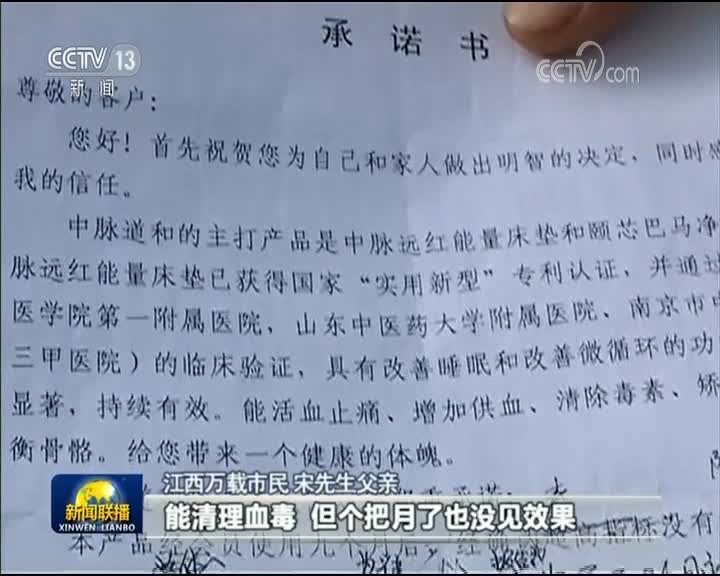 承诺书
CCTV 13
新闻
CCTV.com
尊敬的客户：
您好！首先祝贺您为自己和家人做出明智的决定，同时感
我的信任。
中脉道和的主打产品是中脉远红能量床垫和颐芯巴马净
脉远红能量床垫已获得国家“实用新型”专利认证，并通过
医学院第一附属医院，山东中医药大学附属医院、南京市中
三甲医院）的临床验证，具有改善睡眠和改善微循环的功
显著，持续有效。能活血止痛、增加供血、清除毒素、矫
衡骨骼。给您带来一个健康的体魄。
江西万载市民 宋先生父亲
新闻联播
XINWEN LIANBO
能清理血毒 但个把月了也没见效果
本产品经会员使用九个月后，经
指标没有